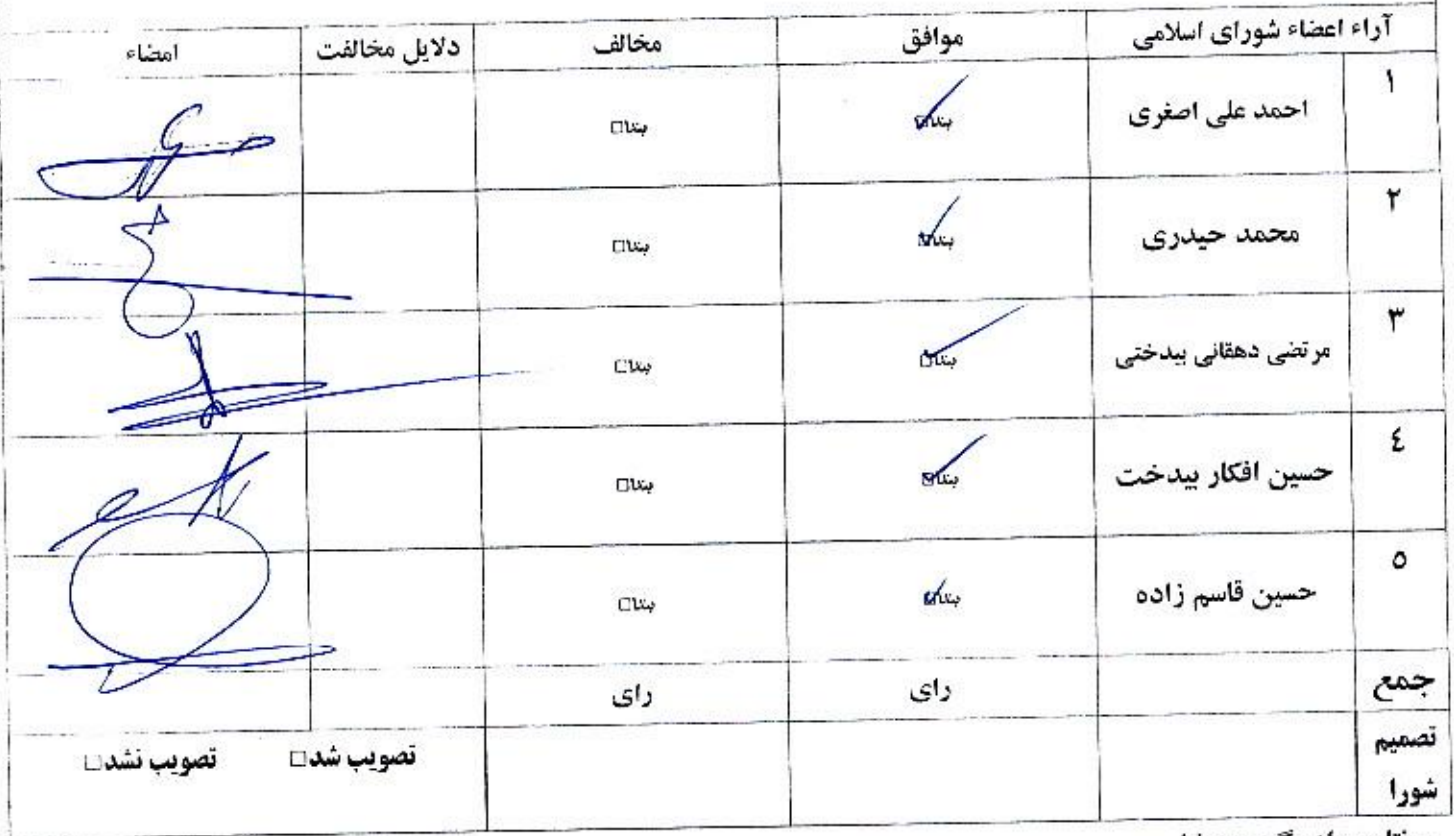 آراء اعضاء شورای اسلامی موافق مخالف دلایل مخالفت امضاء
۱ احمد علی اصغری بندا□ بندا□
۲ محمد حیدری بندا□ بندا□
۳ مرتضی دهقانی بیدختی بندا□ بندا□
٤ حسین افکار بیدخت بندا□ بندا□
٥ حسین قاسم زاده بندا□ بندا□
جمع رای رای
تصمیم شورا تصویب شد□ تصویب نشد□